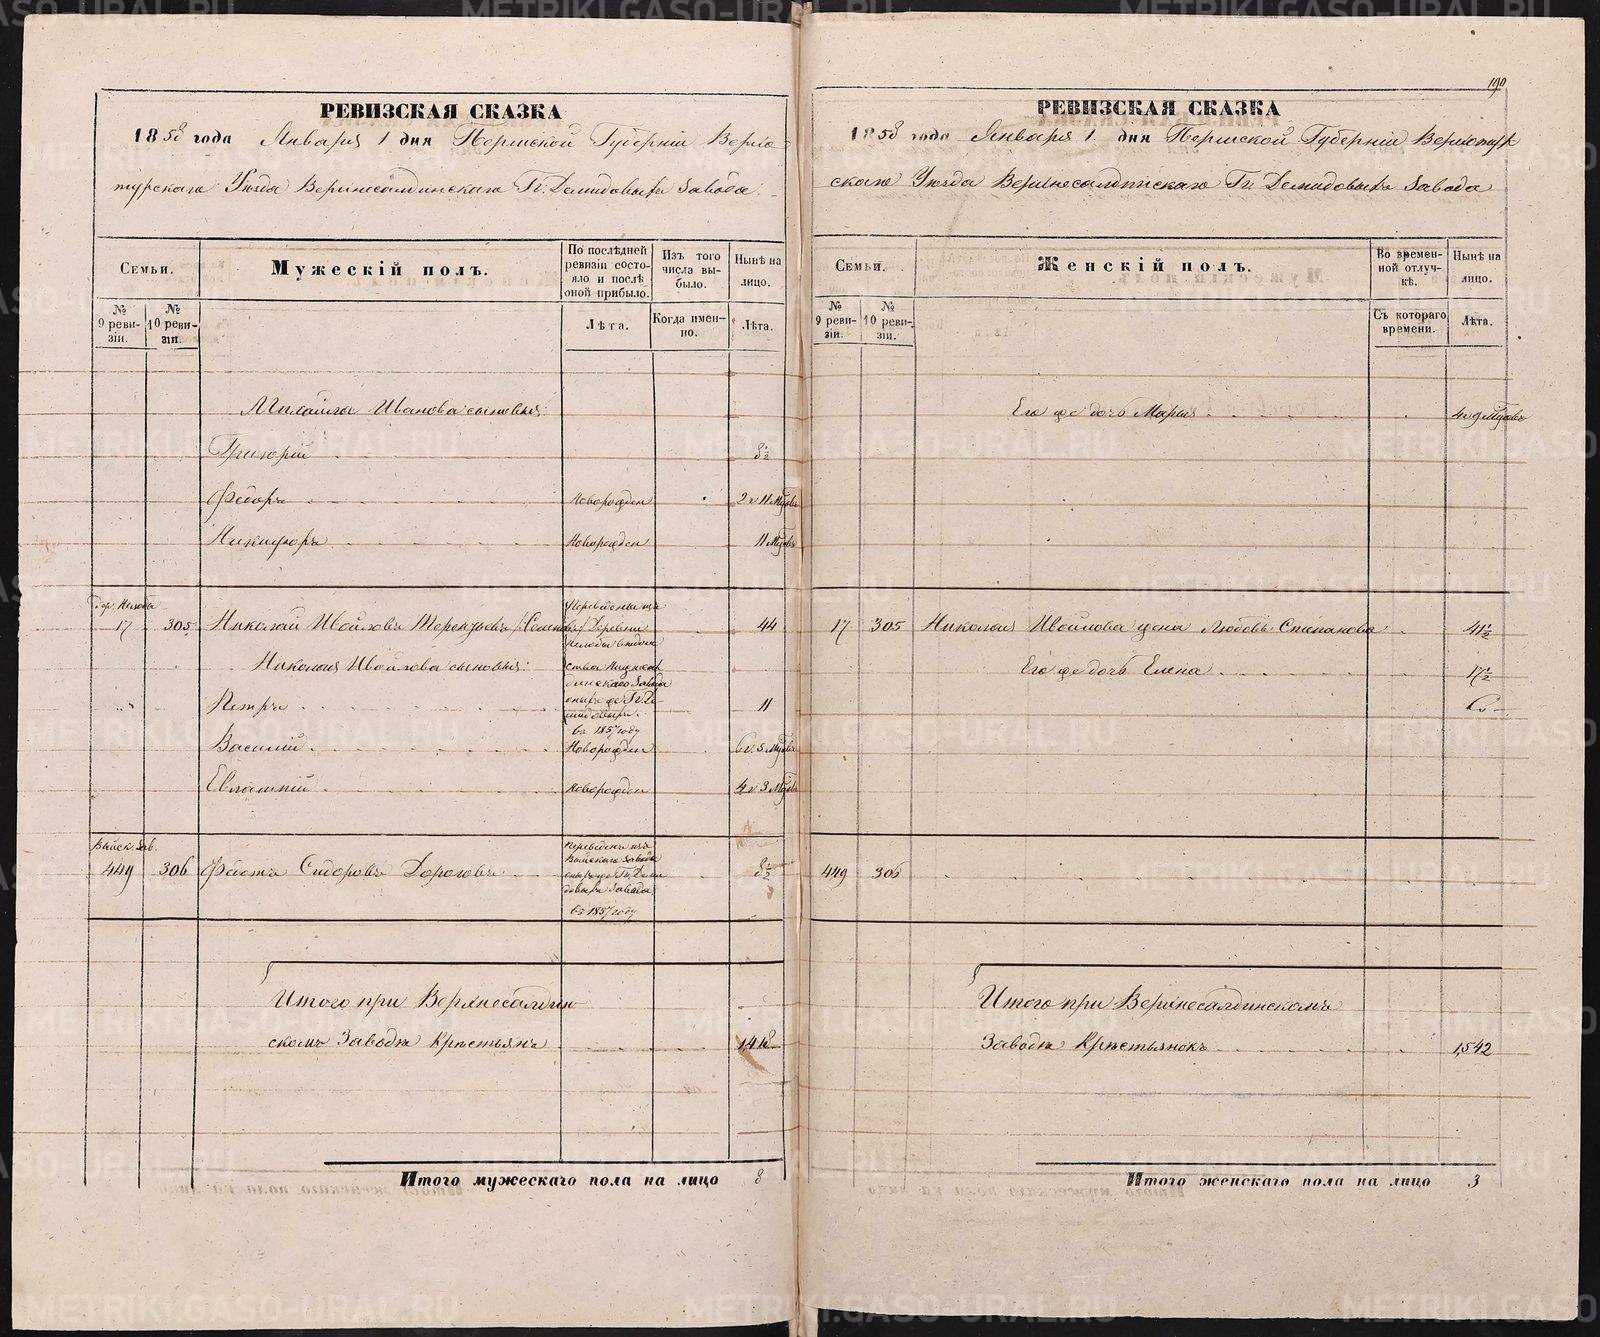 РЕВИЗСКАЯ СКАЗКА
1858 года Января 1 дня Пермской Губерніи Верхо-
турскаго Уѣзда Верхнесалдинскаго Гг. Демидовыхъ Завода
Семьи.
Мужескій полъ.
По послѣдней ревизіи состояло и послѣ оной прибыло.
Изъ того числа выбыло.
Нынѣ на лицо.
№ 9 ревизіи.
№ 10 ревизіи.
Лѣта.
Когда именно.
Лѣта.
Ивановa сыновья:
Григорій 8½
Федоръ Новорожден 2 и 11 Мцовъ
Никифоръ Новорожден 11 Мцовъ
17 305 Николай Терентьевъ 44
Переведены изъ
Деревни
въ 1857 году
Николая сыновья:
Петръ 11
Василій Новорожден 6 и 5 Мцовъ
Евлампій Новорожден 4 и 3 Мцов
Выйск. Зав.
449 306 Федотъ Сидоровъ Дороговъ 8½
Переведенъ изъ
Выйскаго Завода
въ 1857 году
Итого при Верхнесалдин-
скомъ Заводѣ Крестьянъ 1418
Итого мужескаго пола на лицо 8
190
РЕВИЗСКАЯ СКАЗКА
1858 года Января 1 дня Пермской Губерніи Верхотур
скаго Уѣзда Верхнесалдинскаго Гг. Демидовыхъ Завода
Семьи.
Женскій полъ.
Во временной отлучкѣ.
Нынѣ на лицо.
№ 9 ревизіи.
№ 10 ревизіи.
Съ котораго времени.
Лѣта.
Его же дочь Марья 4 и 9 Мцовъ
17 305 Николая жена Любовь Степанова 41½
Его же дочь Елена 17½
449 306
Итого при Верхнесалдинскомъ
Заводѣ Крестьянокъ 1,542
Итого женскаго пола на лицо 3
METRIKI.GASO-URAL.RU